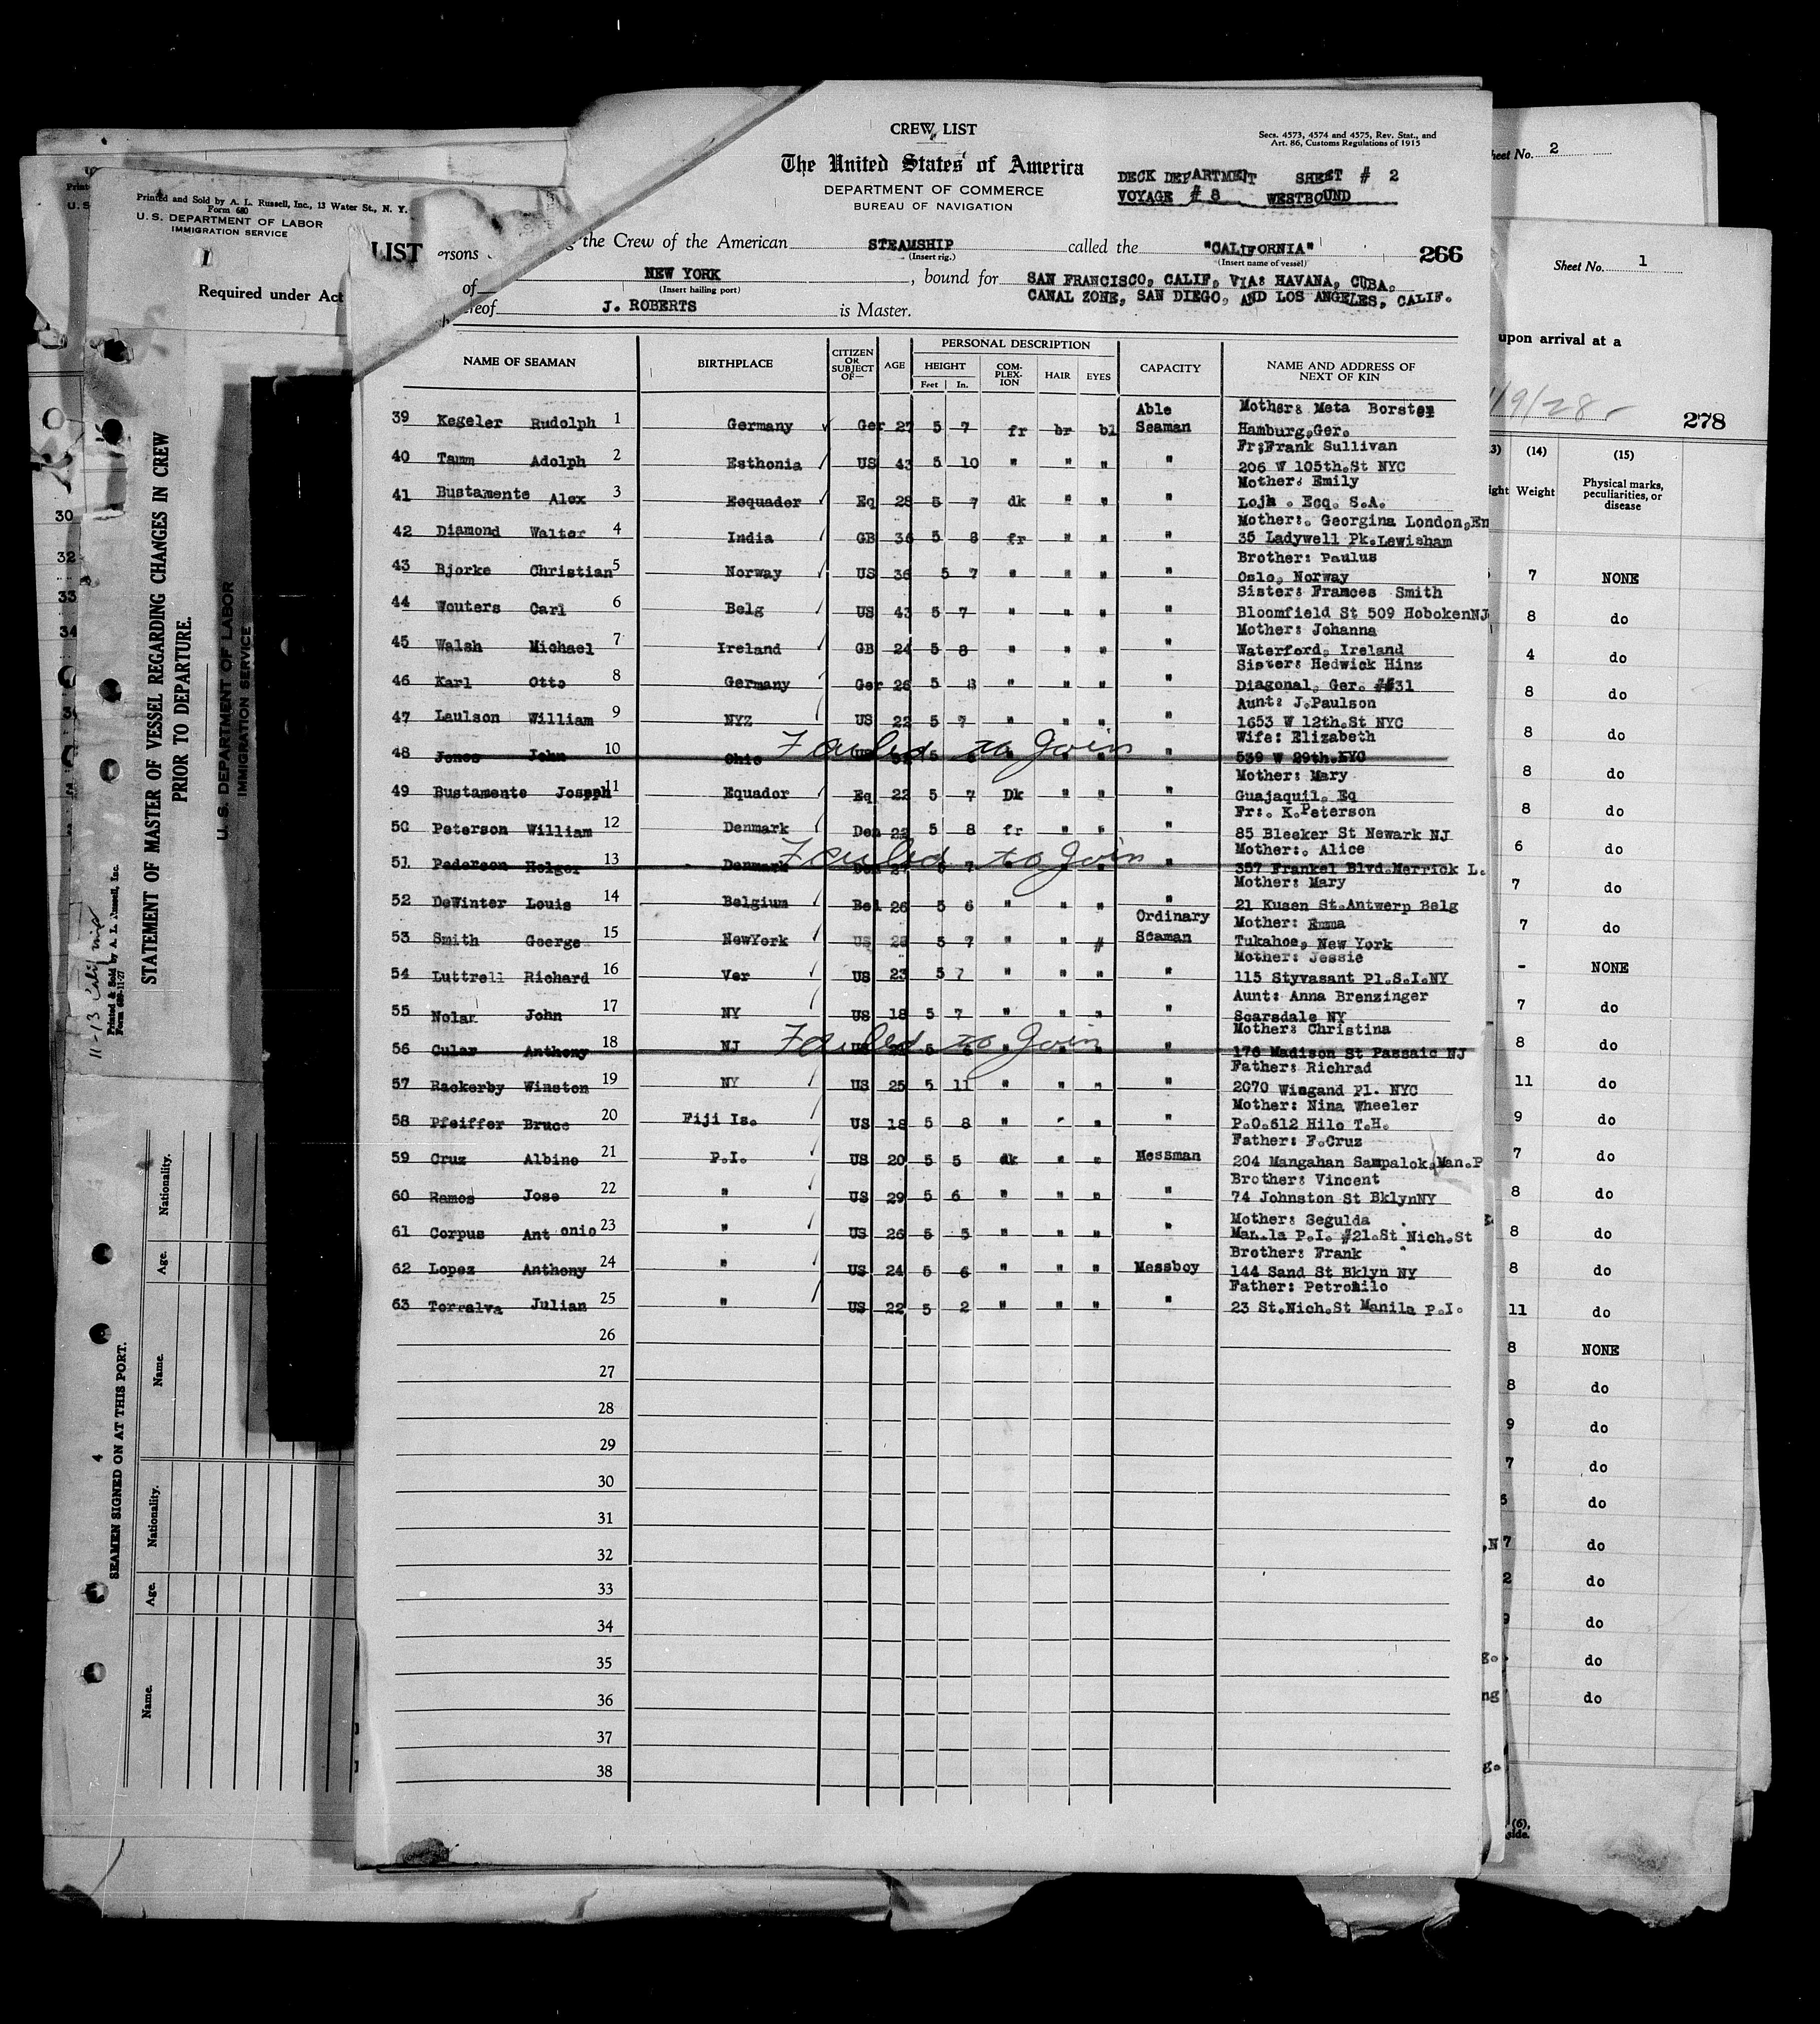 CREW LIST
The United States of America
DEPARTMENT OF COMMERCE
BUREAU OF NAVIGATION
Secs. 4573, 4574 and 4575, Rev. Stat., and
Art. 86, Customs Regulations of 1915
DECK DEPARTMENT SHEET # 2
VOYAGE # 8 WESTBOUND
LIST ersons the Crew of the American STEAMSHIP called the "CALIFORNIA" 266
(Insert rig.) (Insert name of vessel)
of NEW YORK, bound for SAN FRANCISCO, CALIF, VIA: HAVANA, CUBA,
(Insert hailing port) CANAL ZONE, SAN DIEGO, AND LOS ANGELES, CALIF.
ereof J. ROBERTS is Master.
NAME OF SEAMAN BIRTHPLACE CITIZEN OR SUBJECT OF— AGE PERSONAL DESCRIPTION CAPACITY NAME AND ADDRESS OF NEXT OF KIN
HEIGHT COMPLEXION HAIR EYES
Feet In.
39 Kegeler Rudolph 1 Germany Ger 27 5 7 fr br bl Able Seaman Mother: Meta Borster Hamburg,Ger.
40 Tamm Adolph 2 Esthonia US 43 5 10 " " " " Fr:Frank Sullivan 206 W 105th.St NYC
41 Bustamente Alex 3 Ecquador Eq 28 5 7 dk " " " Mother: Emily Loja . Ecq. S.A.
42 Diamond Walter 4 India GB 36 5 8 fr " " " Mother:. Georgina London,En 35 Ladywell Pk.Lewisham
43 Bjorke Christian 5 Norway US 36 5 7 " " " " Brother: Paulus Oslo, Norway
44 Wouters Carl 6 Belg US 43 5 7 " " " " Sister: Frances Smith Bloomfield St 509 HobokenNJ
45 Walsh Michael 7 Ireland GB 24 5 8 " " " " Mother: Johanna Waterford, Ireland
46 Karl Otto 8 Germany Ger 26 5 8 " " " " Sister: Hedwick Hinz Diagonal, Ger. ##31
47 Laulson William 9 NYZ US 22 5 7 " " " " Aunt: J.Paulson 1653 W 12th.St NYC
48 Jones John 10 Ohio US 5 " Wife: Elizabeth 539 W 29th.NYC
Failed to Join
49 Bustamente Joseph 11 Equador Eq 22 5 7 Dk " " " Mother: Mary Guajaquil, Eq
50 Peterson William 12 Denmark Den 22 5 8 fr " " " Fr:. K.Peterson 85 Bleeker St Newark NJ
51 Pederson Holger 13 Denmark Den 27 5 7 " Mother:. Alice 357 Frankel Blvd.Merrick L.
Failed to Join
52 DeWinter Louis 14 Belgium Bel 26 5 6 " " " " Mother: Mary 21 Kusen St.Antwerp Belg
53 Smith George 15 NewYork US 28 5 7 " " # Ordinary Seaman Mother: Emma Tukahoe, New York
54 Luttrell Richard 16 Ver US 23 5 7 " " " " Mother: Jessie 115 Styvasant Pl.S.I.NY
55 Nolan John 17 NY US 18 5 7 " " " " Aunt: Anna Brenzinger Scarsdale NY
56 Cular Anthony 18 NJ US 5 6 " Mother: Christina 176 Madison St Passaic NJ
Failed to Join
57 Rackerby Winston 19 NY US 25 5 11 " " " " Father: Richrad 2070 Wiegand Pl. NYC
58 Pfeiffer Bruce 20 Fiji Is. US 18 5 8 " " " " Mother: Nina Wheeler P.O.612 Hilo T.H.
59 Cruz Albino 21 P.I. US 20 5 5 dk " " Messman Father: F.Cruz 204 Mangahan Sampalok,Man.P
60 Ramos Jose 22 " US 29 5 6 " " " " Brother: Vincent 74 Johnston St BklynNY
61 Corpus Antonio 23 " US 26 5 5 " " " " Mother: Segulda Manila P.I. #21.St Nich.St
62 Lopez Anthony 24 " US 24 5 6 " " " Messboy Brother: Frank 144 Sand St Bklyn NY
63 Torralva Julian 25 " US 22 5 2 " " " " Father: Petronilo 23 St.Nich.St Manila P.I.
26
27
28
29
30
31
32
33
34
35
36
37
38
Printed and Sold by A. L. Russell, Inc., 13 Water St., N. Y.
Form 680
U. S. DEPARTMENT OF LABOR
IMMIGRATION SERVICE
1
Required under Act
STATEMENT OF MASTER OF VESSEL REGARDING CHANGES IN CREW
PRIOR TO DEPARTURE.
U. S. DEPARTMENT OF LABOR
IMMIGRATION SERVICE
Printed & Sold by A. L. Russell, Inc.
Form 689-11-27
11-13 California
SEAMEN SIGNED ON AT THIS PORT.
4
Nationality.
Age.
Name.
Nationality.
Age.
Name.
30
32
33
34
heet No. 2
Sheet No. 1
upon arrival at a
/9/28
278
(14) (15)
Weight Physical marks, peculiarities, or disease
7 NONE
8 do
4 do
8 do
8 do
8 do
8 do
6 do
7 do
7 do
- NONE
7 do
8 do
11 do
9 do
7 do
8 do
8 do
8 do
11 do
8 NONE
8 do
9 do
7 do
5 do
,N 7 do
2 do
9 do
g. do
ng do
g.
(6),
side.